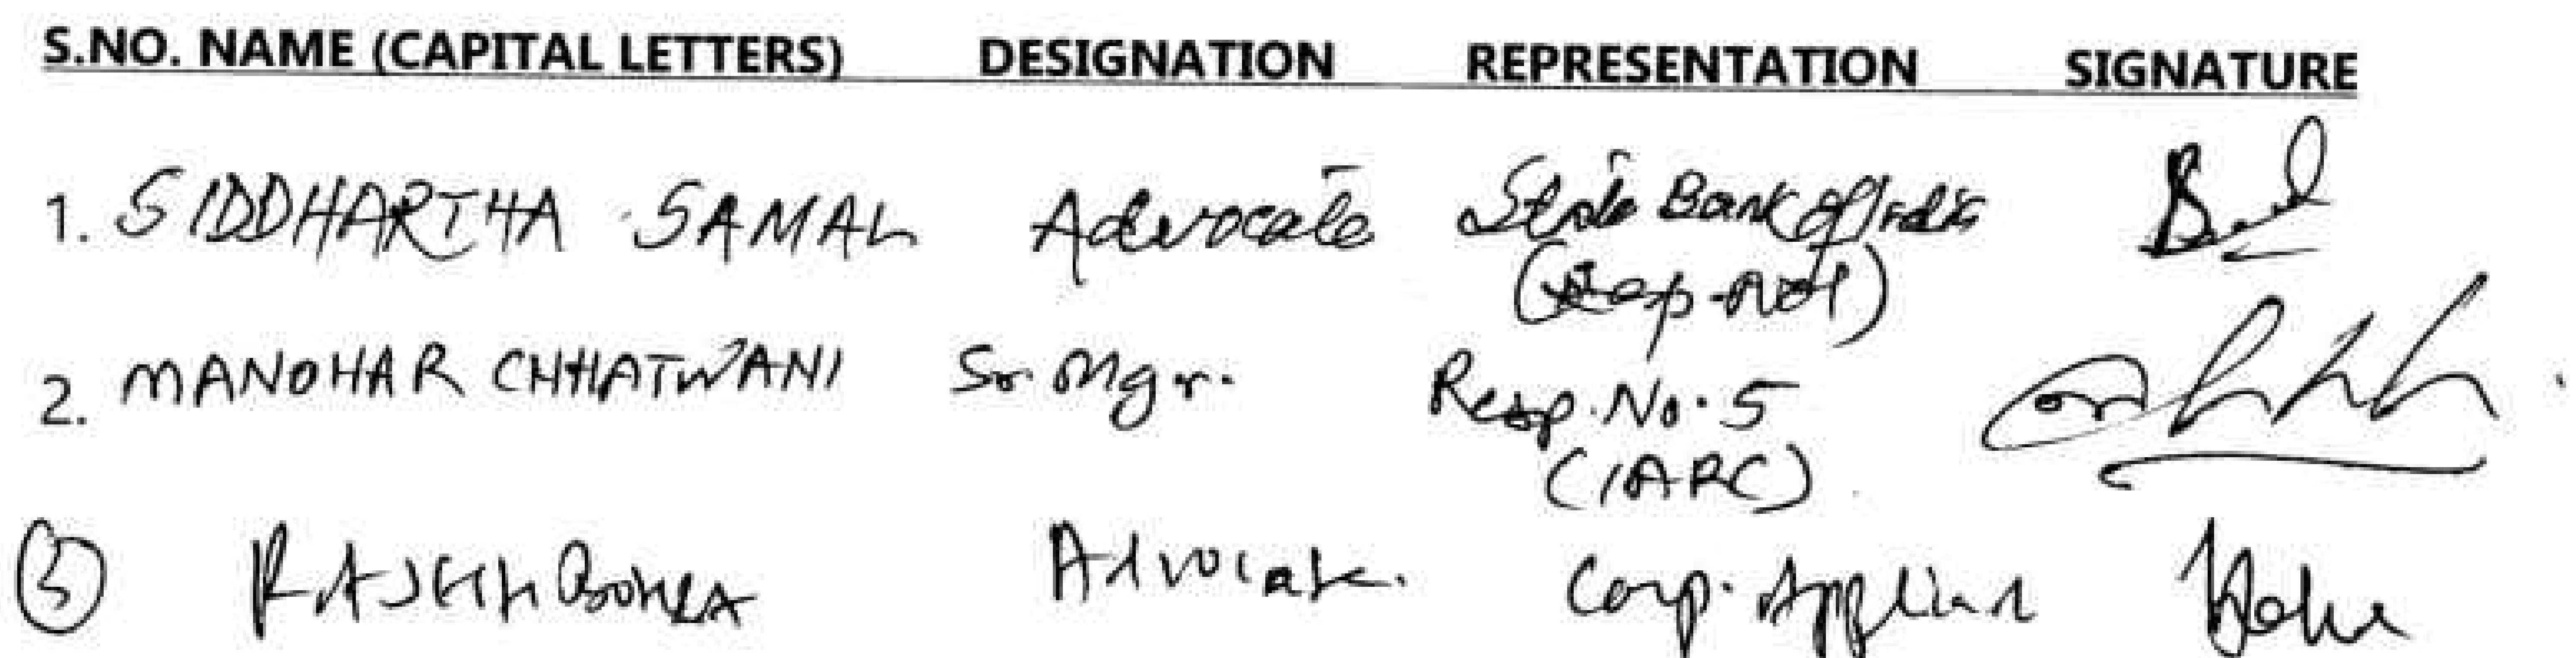 S.NO. NAME (CAPITAL LETTERS) DESIGNATION REPRESENTATION SIGNATURE
1. SIDDHARTHA SAMAL Advocate State Bank of India
(Resp-No1)
2. MANOHAR CHHATWANI Sr. Mgr. Resp. No. 5
(IARC)
3 RAJESH BOHRA Advocate. Corp. Applicant